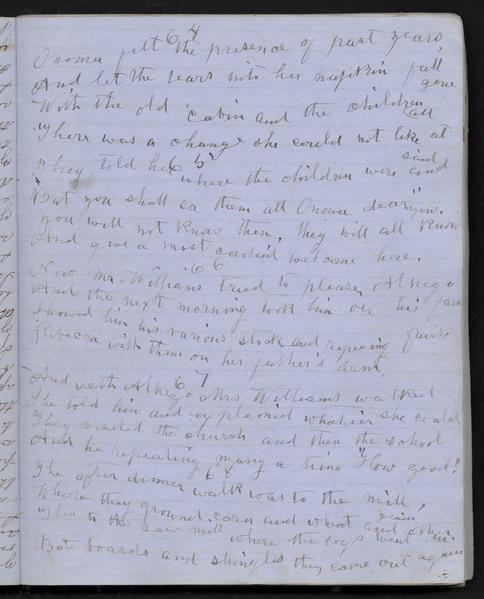 64
Onoma felt the presence of past years
And let the tears into his napkin fall
With the old cabin and the children gone
There was a change she could not like at all
65
They told her where the children were and said
But you shall sa them all Onoma dear
You will not know them, they will all know you.
And give a most cordial welcome here.
66
Now Mr. Williams tried to please Alkego
And the next morning took him over his farm
Showed him his various stock and repeating
Rebecca with them on her father's arm,
67
And with Alkego Mrs Williams walked
She told him and explained whatever she could
They visited the church and then the school
And he repeating many a time "How good!
68
The after dinner walk was to the mill,
Where they ground corn and wheat and other grain
Then to the saw mill where the logs went in
But boards and shingles they came out again